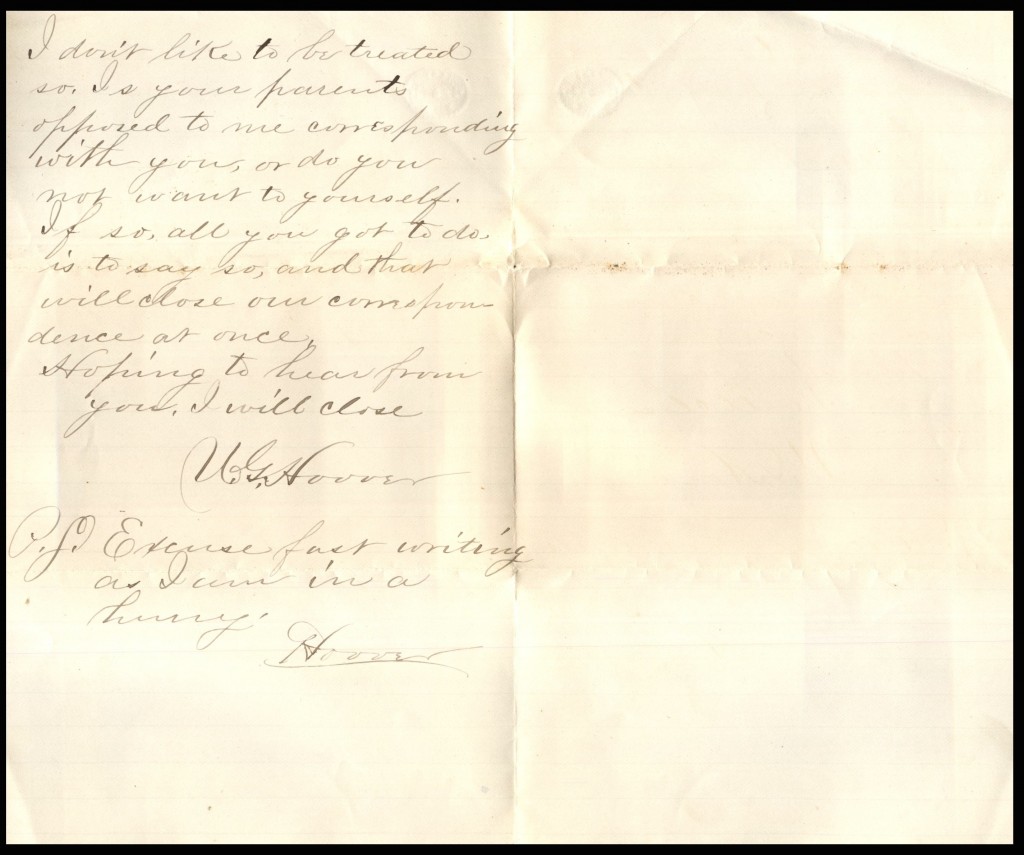 I don't like to be treated
so. Is your parents
opposed to me corresponding
with you, or do you
not want to yourself.
If so, all you got to do,
is to say so, and that
will close our correspon-
dence at once.
Hoping to hear from
you. I will close
U.G. Hoover
P.S. Excuse fast writing
as I am in a
hurry.
Hoover